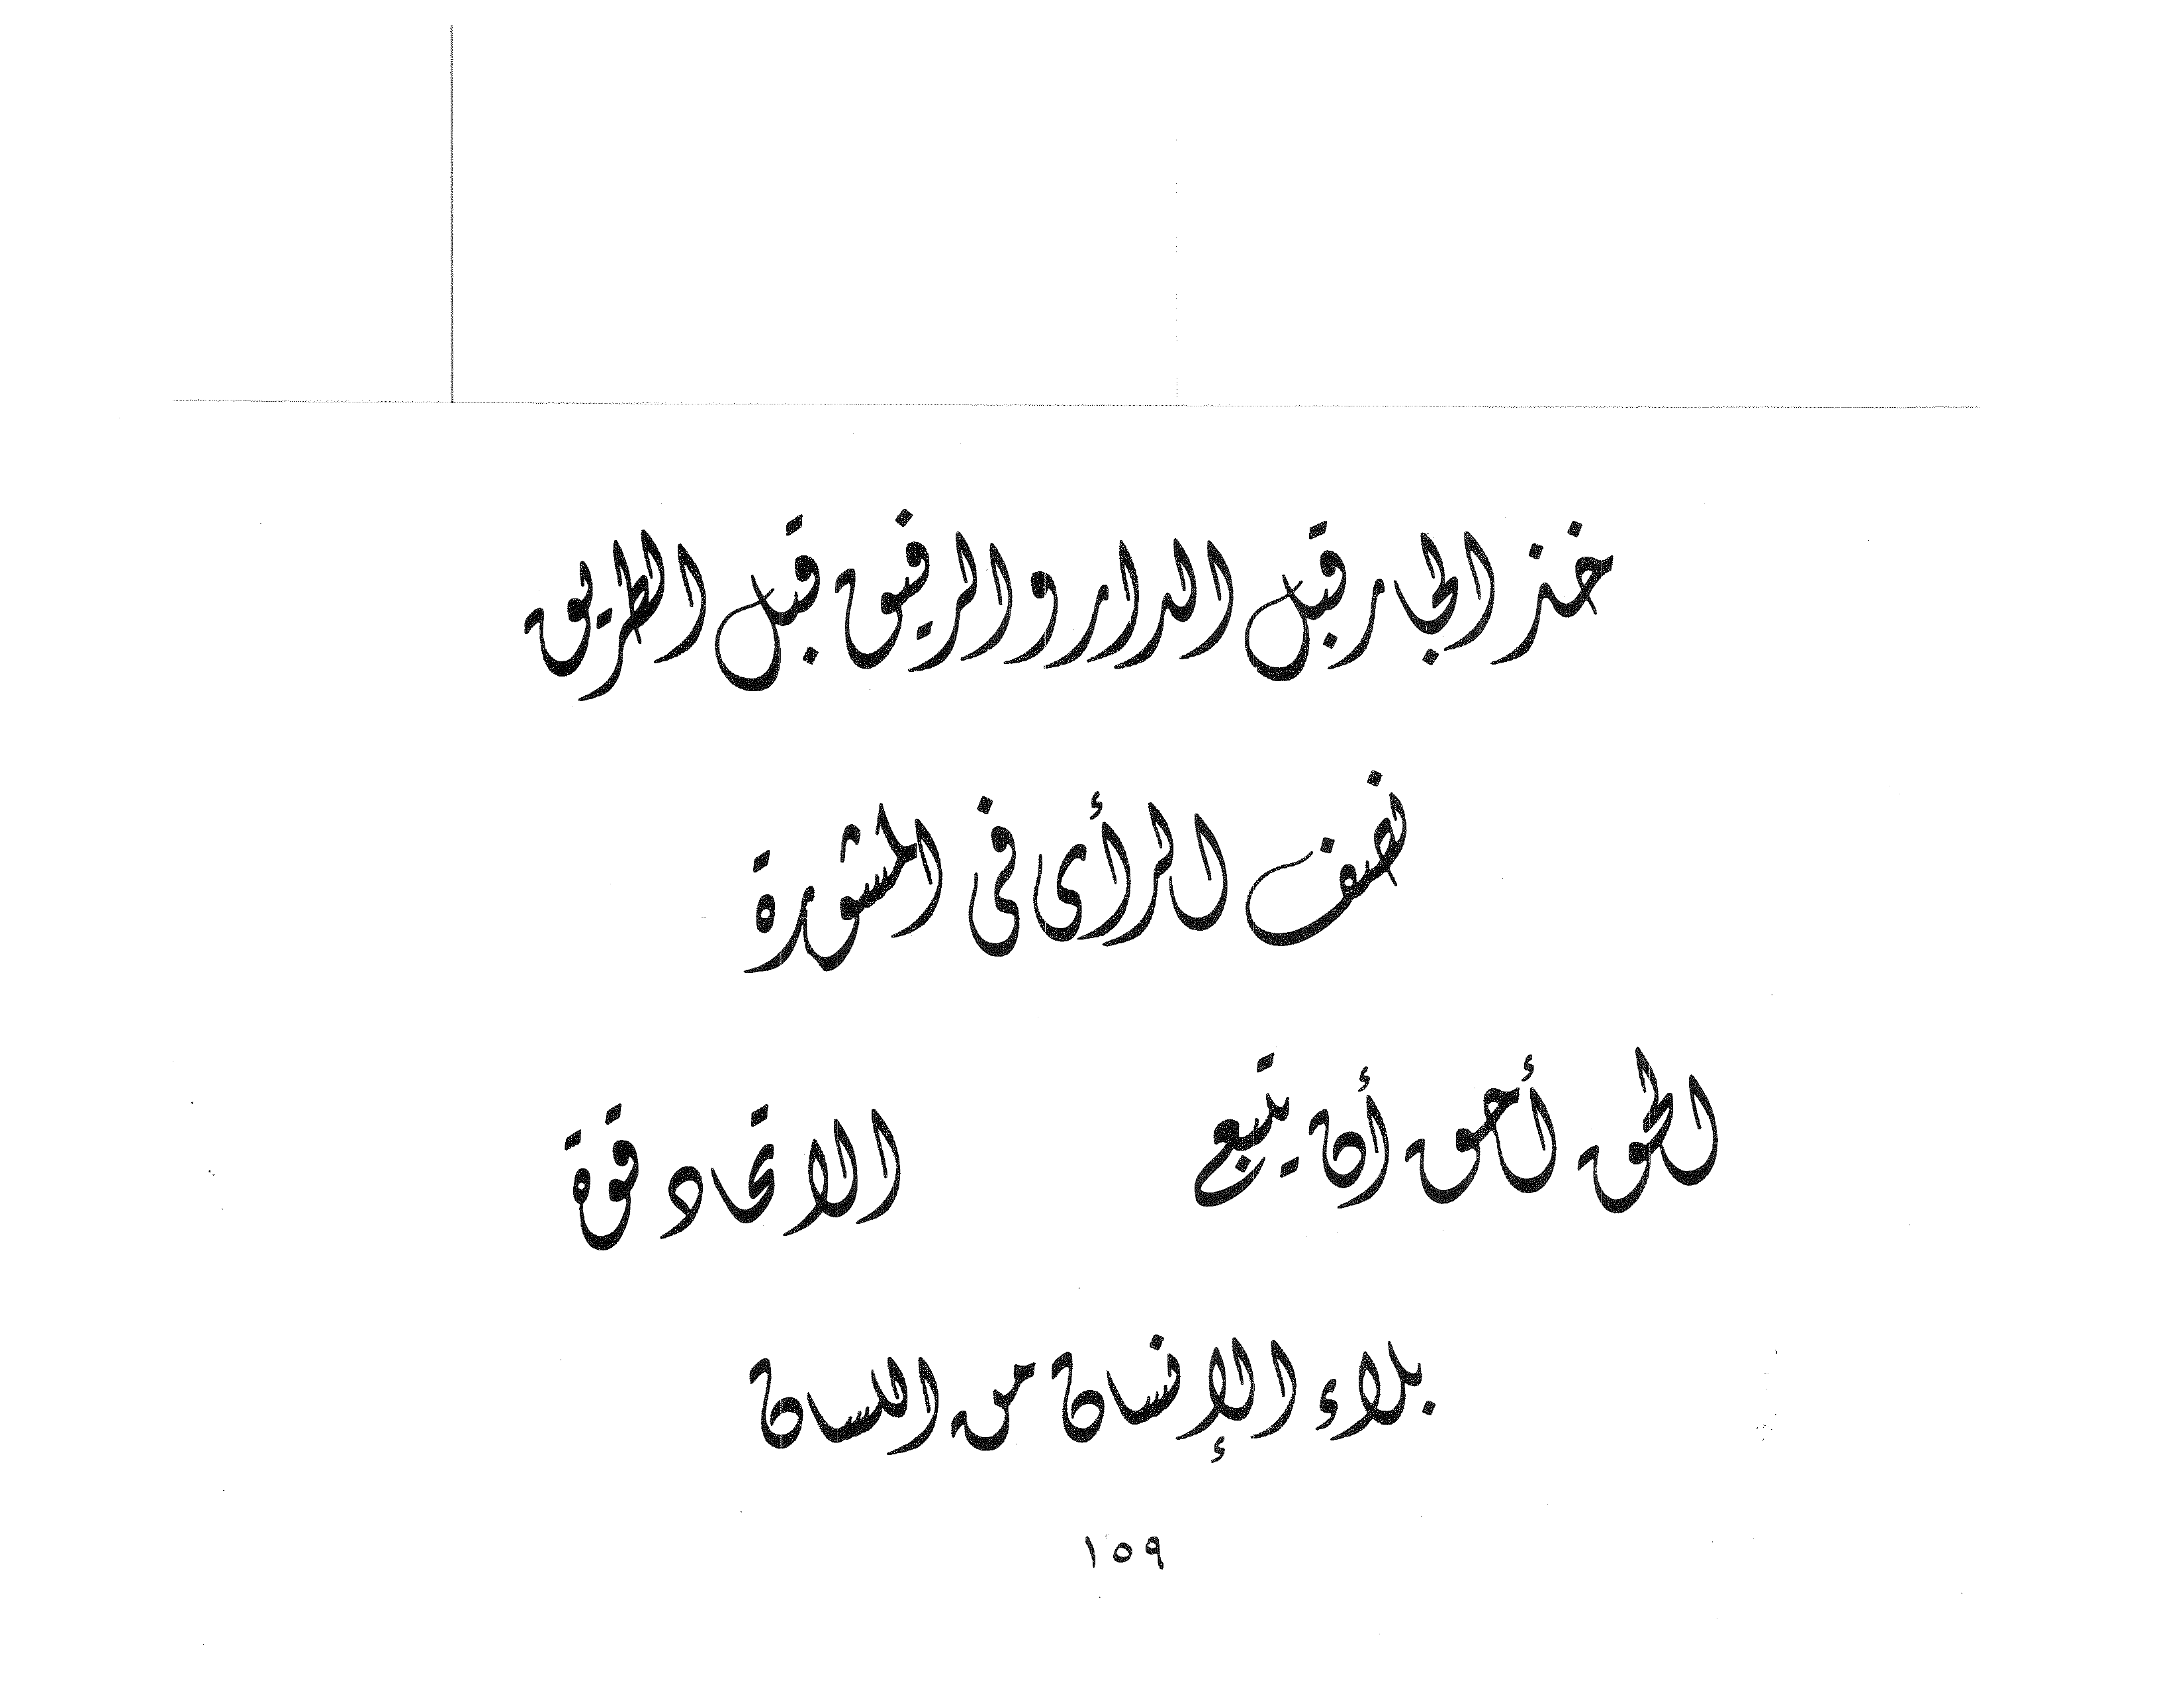 خذ الجار قبل الدار والرفيق قبل الطريق
نصف الرأى فى المشورة
الحق أحق أن يتبع الاتحاد قوة
بلاء الإنسان من اللسان
١٥٩